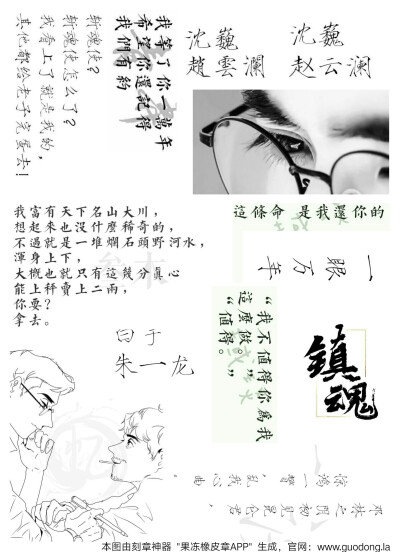 我等了你一萬年
希望你還記得
我們有約
斬魂使？
斬魂使怎么了？
我看上了就是我的，
其他都給老子完蛋去！
沈巍
趙雲瀾
沈巍
赵云澜
我富有天下名山大川，
想起來也沒什麼稀奇的，
不過就是一堆爛石頭野河水，
渾身上下，
大概也就只有這幾分真心
能上秤賣上二兩，
你要？
拿去。
這條命 是我還你的
一眼万年
“我不值得你為我
這麼做。”
“值得。”
鎮魂
曰于
朱一龙
邓林之阴初见昆仑君，
惊鸿一瞥，乱我心曲。
本图由刻章神器 "果冻橡皮章APP" 生成，官网：www.guodong.la